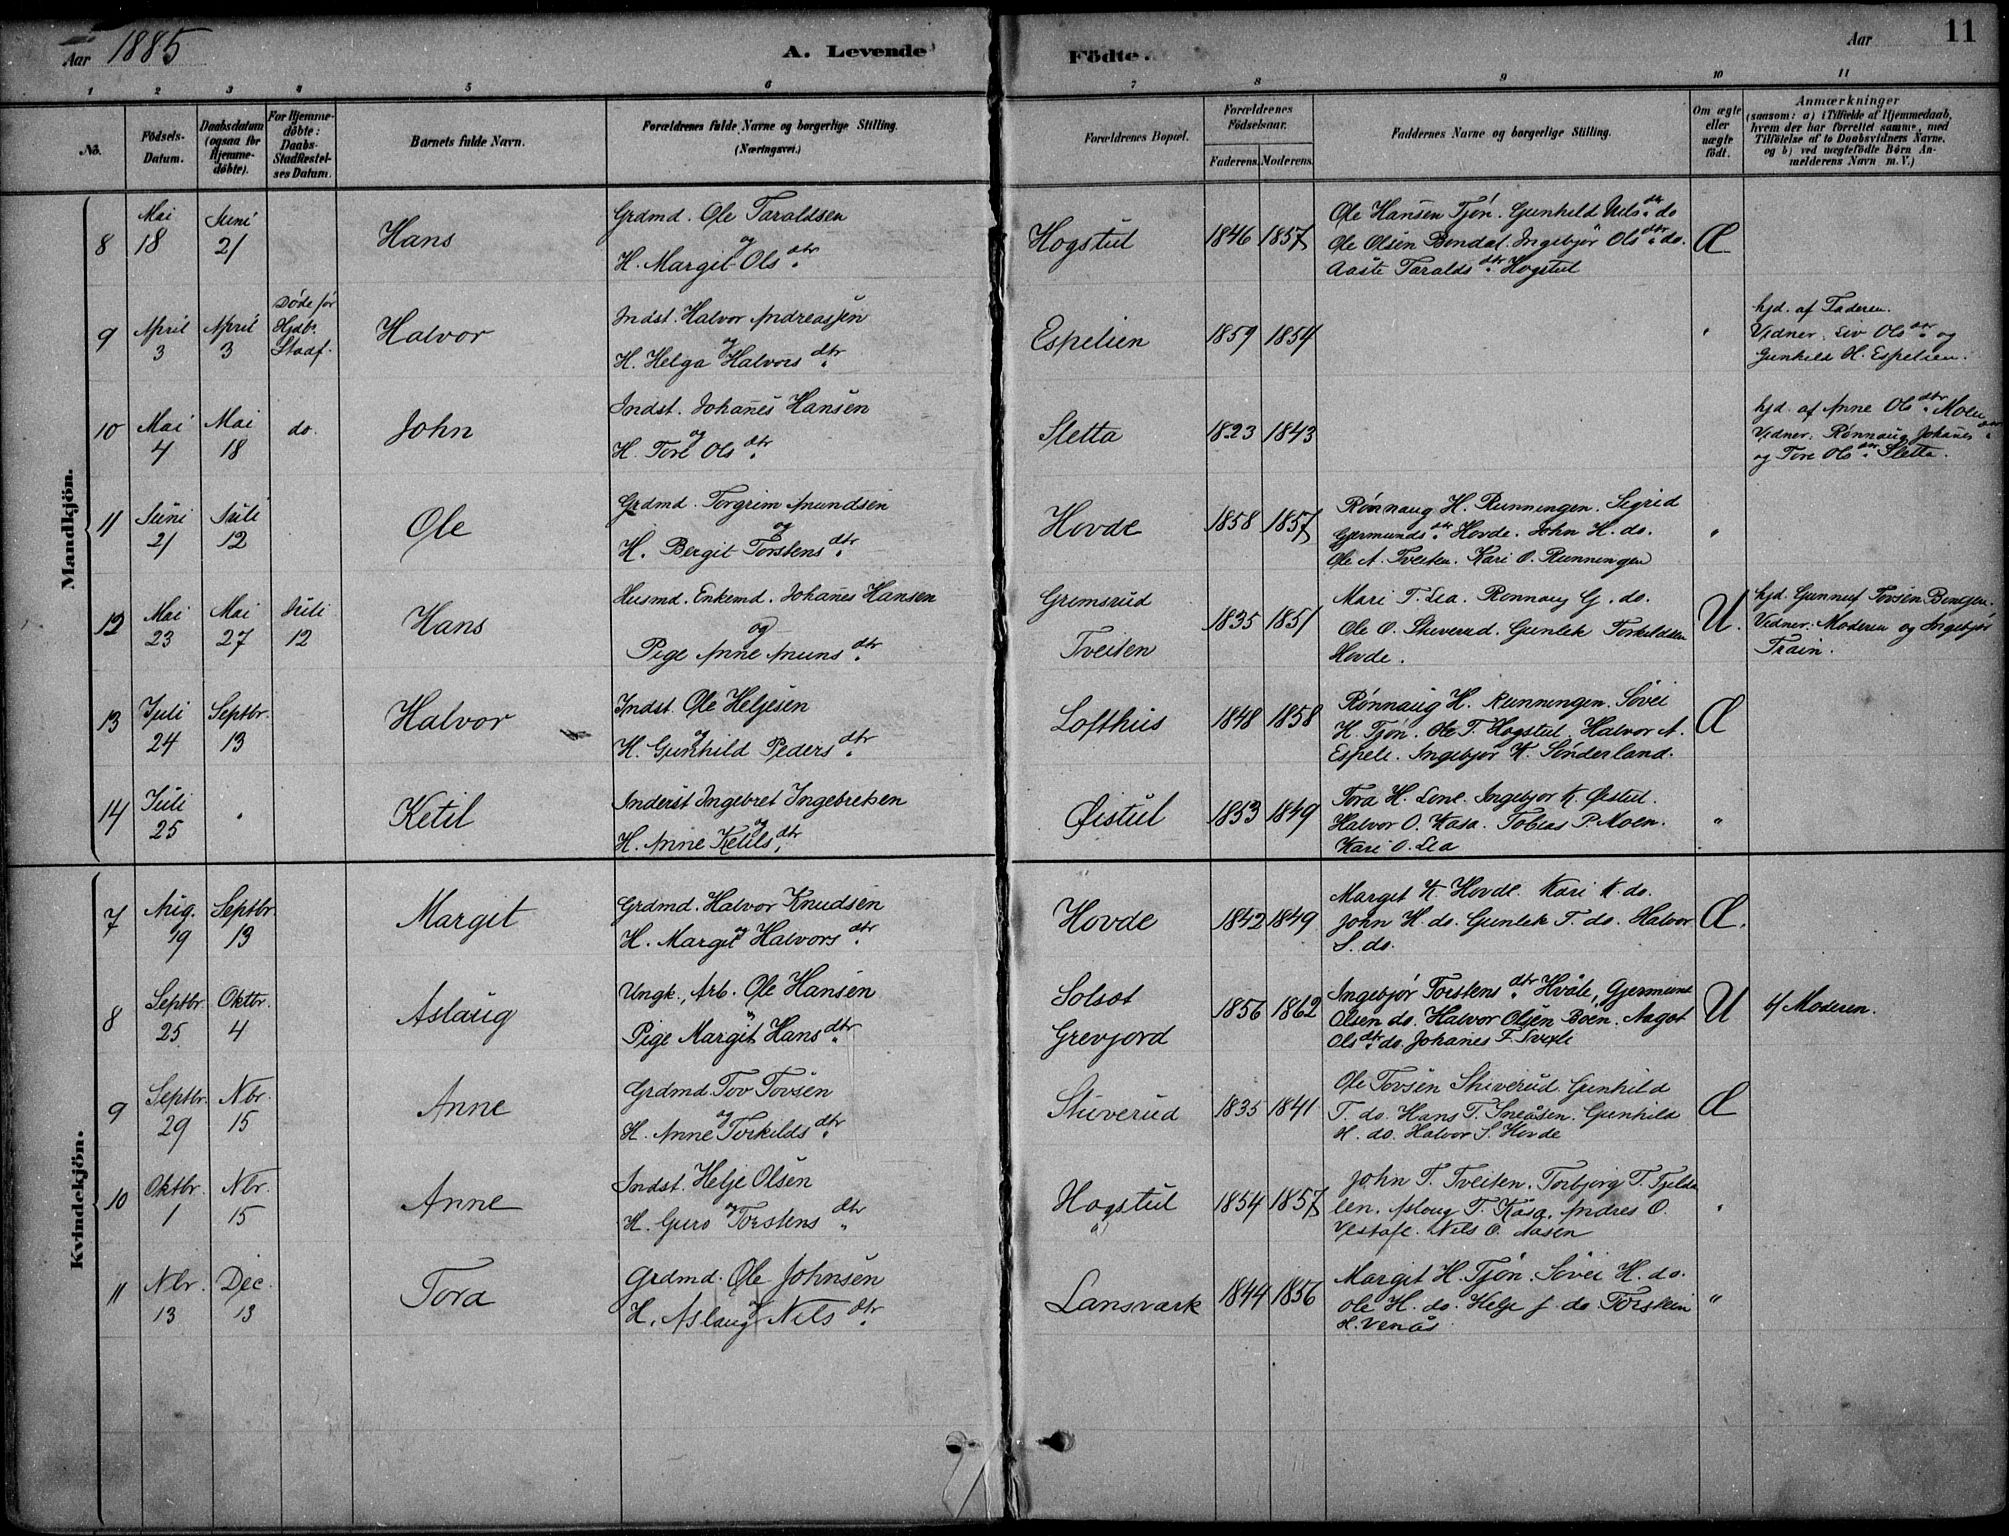 Aar 1885
A. Levende
Födte.
Aar
11
1 2 3 4 5 6 7 8 9 10 11
No.
Födsels-Datum.
Daabsdatum (ogsaa for Hjemmedöbte).
For Hjemmedöbte: Daabs-Stadfæstelses Datum.
Barnets fulde Navn.
Forældrenes fulde Navne og borgerlige Stilling.
(Næringsvei.)
Forældrenes Bopæl.
Forældrenes Födselsaar.
Faderens. Moderens.
Faddernes Navne og borgerlige Stilling.
Om ægte eller uægte født.
Anmærkninger
(saasom: a) i Tilfælde af Hjemmedaab,
hvem der har forrettet samme, med
Tilföielse af to Daabsvidners Navne,
og b) ved uægtefödte Börn Anmelderens Navn m. V.)
Mandkjön.
8 Mai 18 Juni 21 Hans
Grdmd. Ole Taraldsen
og
H. Margit Olsdtr.
Hogstul 1846 1857
Ole Hansen Tjøn. Gunhild Nilsdtr. do
Ole Olsen Bondal. Ingebjør Olsdtr. do.
Aaste Taraldsdtr. Hogstul
Æ
9 April 3 April 3 Døde før Hjdbs. Stadf. Halvor
Indst. Halvor Andreassen
og
H. Helga Halvorsdtr.
Espelien 1859 1854
"
hjd. af Faderen.
Vidner: Liv Olsdtr. og
Gunhild H. Espelien.
10 Mai 4 Mai 18 do. John
Indst. Johanes Hansen
og
H. Tore Olsdtr.
Sletta 1823 1843
hjd. af Anne Olsdtr. Moen
Vidner: Rønnaug Johanesdtr.
og Tore Olsdtr. Sletta.
11 Juni 21 Juli 12 Ole
Grdmd. Torgrim Amundsen
og
H. Bergit Torstensdtr.
Hovde 1858 1857
Rønnaug H. Runningen. Sigrid
Gjermundsdtr. Hovde. John H. do.
Ole A. Tveiten. Kari O. Runningen
"
12 Mai 23 Mai 27 Juli 12 Hans
Husmd. Enkemd. Johanes Hansen
og
Pige Anne Amunsdtr.
Gremsrud
Tveiten
1835 1851
Mari T. Lea. Ronnaug G. do.
Ole O. Stuverud. Gunlek Torkildsen
Hovde.
U.
hjd. Gunnuf Tovsen
Vidner: Moderen og Ingebjør
Train.
13 Juli 24 Septbr. 13 Halvor
Indst. Ole Heljesen
og
H. Gunhild Pedersdtr.
Lofthus 1848 1858
Rønnaug H. Runningen. Søvei
H. Tjøn. Ole T. Hogstul. Halvor A.
Espeli. Ingebjør K. Sønderland.
Æ
14 Juli 25 " Ketil
Inderst Ingebret Ingebretsen
og
H. Anne Ketilsdtr.
Øistul 1853 1849
Tora H. Lone. Ingebjor K. Øistul.
Halvor O. Kasa. Tobias P. Moen.
Kari O. Lea
"
Kvindekjön.
7 Aug. 19 Septbr. 13 Margit
Grdmd. Halvor Knudsen
og
H. Margit Halvorsdtr.
Hovde 1842 1849
Margit K. Hovde. Kari K. do.
John H. do. Gunlek T. do. Halvor
S. do.
Æ.
8 Septbr. 25 Oktbr. 4 Aslaug
Ungk., Arb. Ole Hansen
og
Pige Margit Hansdtr.
Solsøt
Grevjord
1856 1862
Ingebjør Torstensdtr. Hvåle, Gjermund
Olsen do. Halvor Olsen Boen. Aagot
Olsdtr. do. Johanes T.
U
v/ Moderen.
9 Septbr. 29 Nbr. 15 Anne
Grdmd. Tov Tovsen
og
H. Anne Torkildsdtr.
Stuverud 1835 1841
Ole Tovsen Stuverud. Gunhild
T. do. Hans T. Sneåsen. Gunhild
H. do. Halvor S. Hovde
Æ
10 Oktbr. 1 Nbr. 15 Anne
Indst. Helje Olsen
og
H. Guro Torstensdtr.
Hogstul 1854 1857
John T. Tveiten. Torbjørg T. Fjelda
len. Aslaug T. Kåsa. Andres O.
Vestafe. Nils O. Aasen
"
11 Nbr. 13 Dec. 13 Tora
Grdmd. Ole Johnsen
og
H. Aslaug Nilsdtr.
Lansværk 1844 1856
Margit H. Tjøn. Søvei H. do.
Ole H. do. Helje J. do. Torstein
H. Venås
"